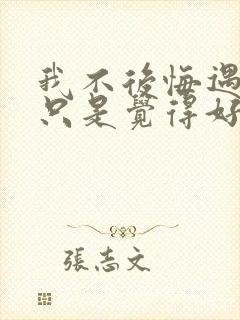 我不後悔遇
只是覺得好
張志文